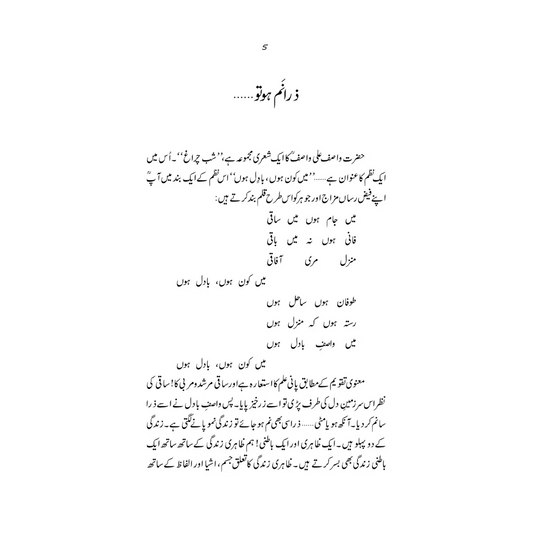 5
ذرا نَم ہو تو......
حضرت واصف علی واصفؒ کا ایک شعری مجموعہ ہے، ’’شب چراغ‘‘۔ اُس میں
ایک نظم کا عنوان ہے......’’میں کون ہوں، بادل ہوں‘‘ اس نظم کے ایک بند میں آپؒ
اپنے فیض رساں مزاج اور جوہر کو اس طرح قلم بند کرتے ہیں:
میں جام ہوں میں ساقی
فانی ہوں نہ میں باقی
منزل مری آفاقی
میں کون ہوں، بادل ہوں
طوفان ہوں ساحل ہوں
رستہ ہوں کہ منزل ہوں
میں واصفِ بادل ہوں
میں کون ہوں، بادل ہوں
معنوی تقویم کے مطابق پانی علم کا استعارہ ہے اور ساقی مرشد و مربی کا! ساقی کی
نظر اس سرزمینِ دل کی طرف پڑی تو اسے زرخیز پایا۔ پس واصفِ بادل نے اسے ذرا
سا نم کر دیا۔ آنکھ ہو یا مٹی......ذرا سی بھی نم ہو جائے تو زندگی نمو پانے لگتی ہے۔ زندگی
کے دو پہلو ہیں۔ ایک ظاہری اور ایک باطنی! ہم ظاہری زندگی کے ساتھ ساتھ ایک
باطنی زندگی بھی بسر کرتے ہیں۔ ظاہری زندگی کا تعلق جسم، اشیا اور الفاظ کے ساتھ